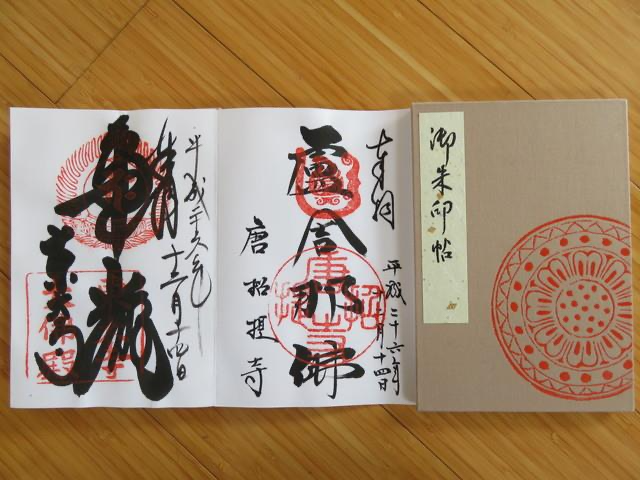 御朱印帖
奉拝
平成二十六年
月十四日
盧舎那佛
唐招提寺
唐招提寺
平成二十六年
十二月十四日
奉拝
華厳
東大寺